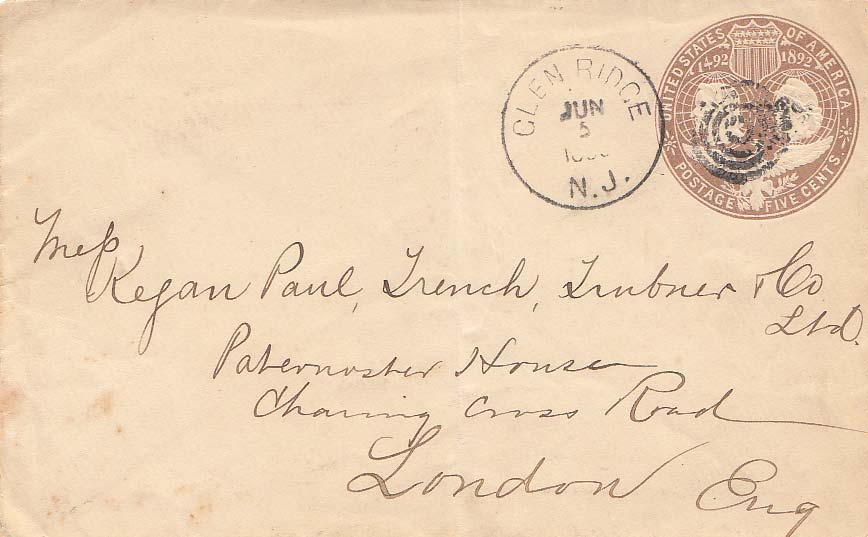 UNITED STATES OF AMERICA
1492 1892
POSTAGE FIVE CENTS.
GLEN RIDGE
JUN
5
N.J.
Mess
Kegan Paul, Trench, Trubner & Co
Ltd.
Paternoster House
Charing Cross Road
London Eng